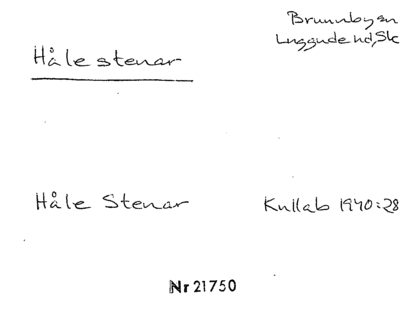 Brunnby sn
Luggude hd, Sk
Håle stenar
Håle Stenar
Kullab 1940:28
Nr 21750